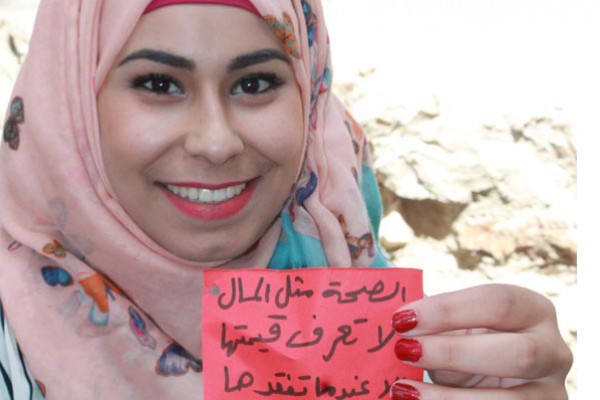 الصحة مثل المال
لا تعرف قيمتها
لا عندما تفقدها